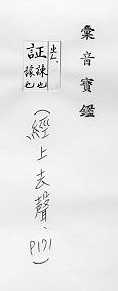 彙音寶鑑
出ㄥ、
証 諫也 諑也
(經上去聲、
P171)